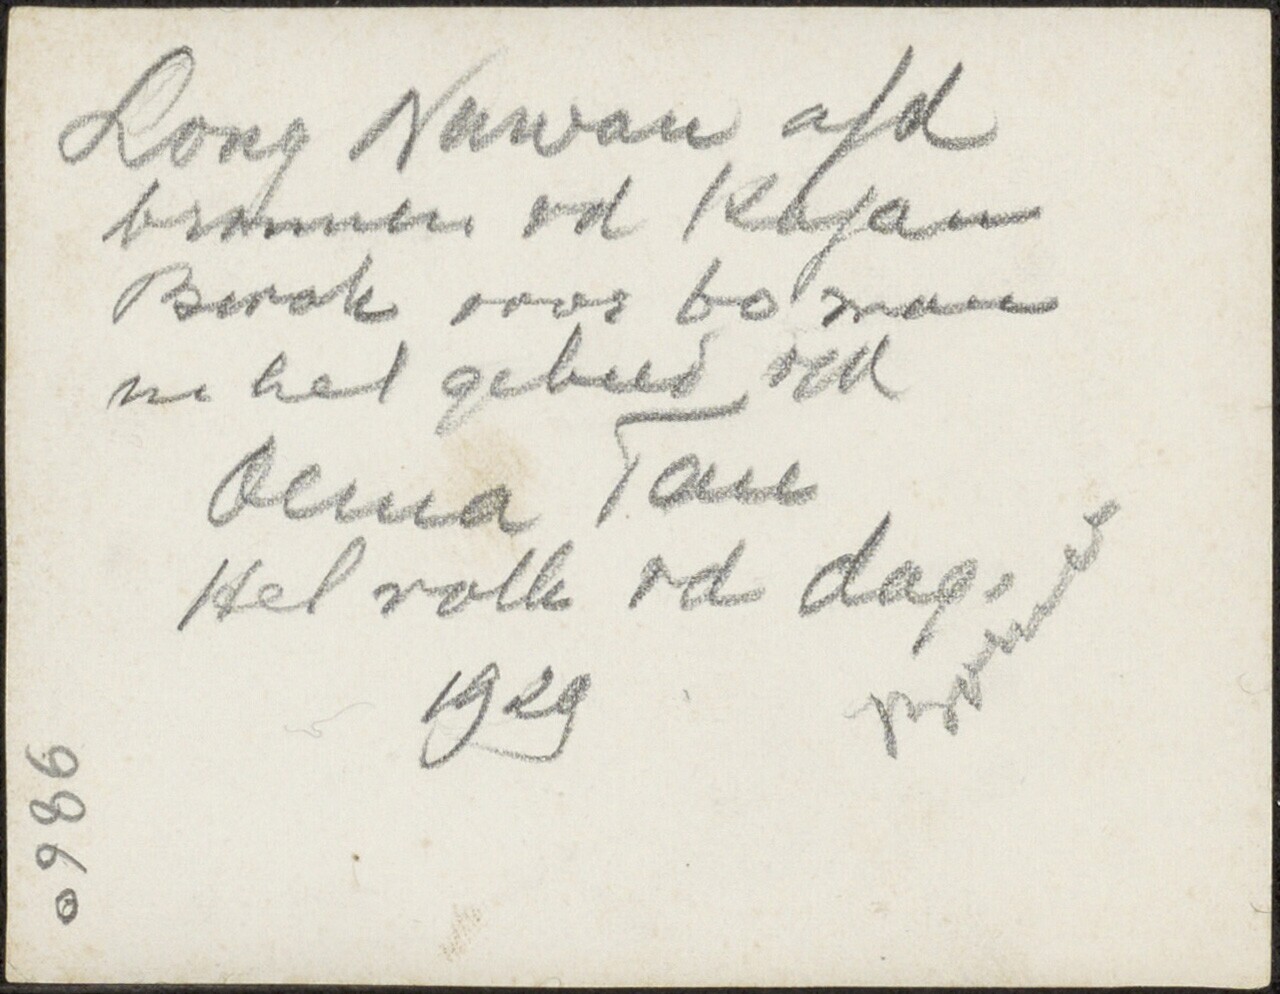 Long Nawan a/d
bronnen vd Kajan
Bezoek voor bo man
in het gebied v/d
Oema Tau
Het volk vd dag.
1929
0986